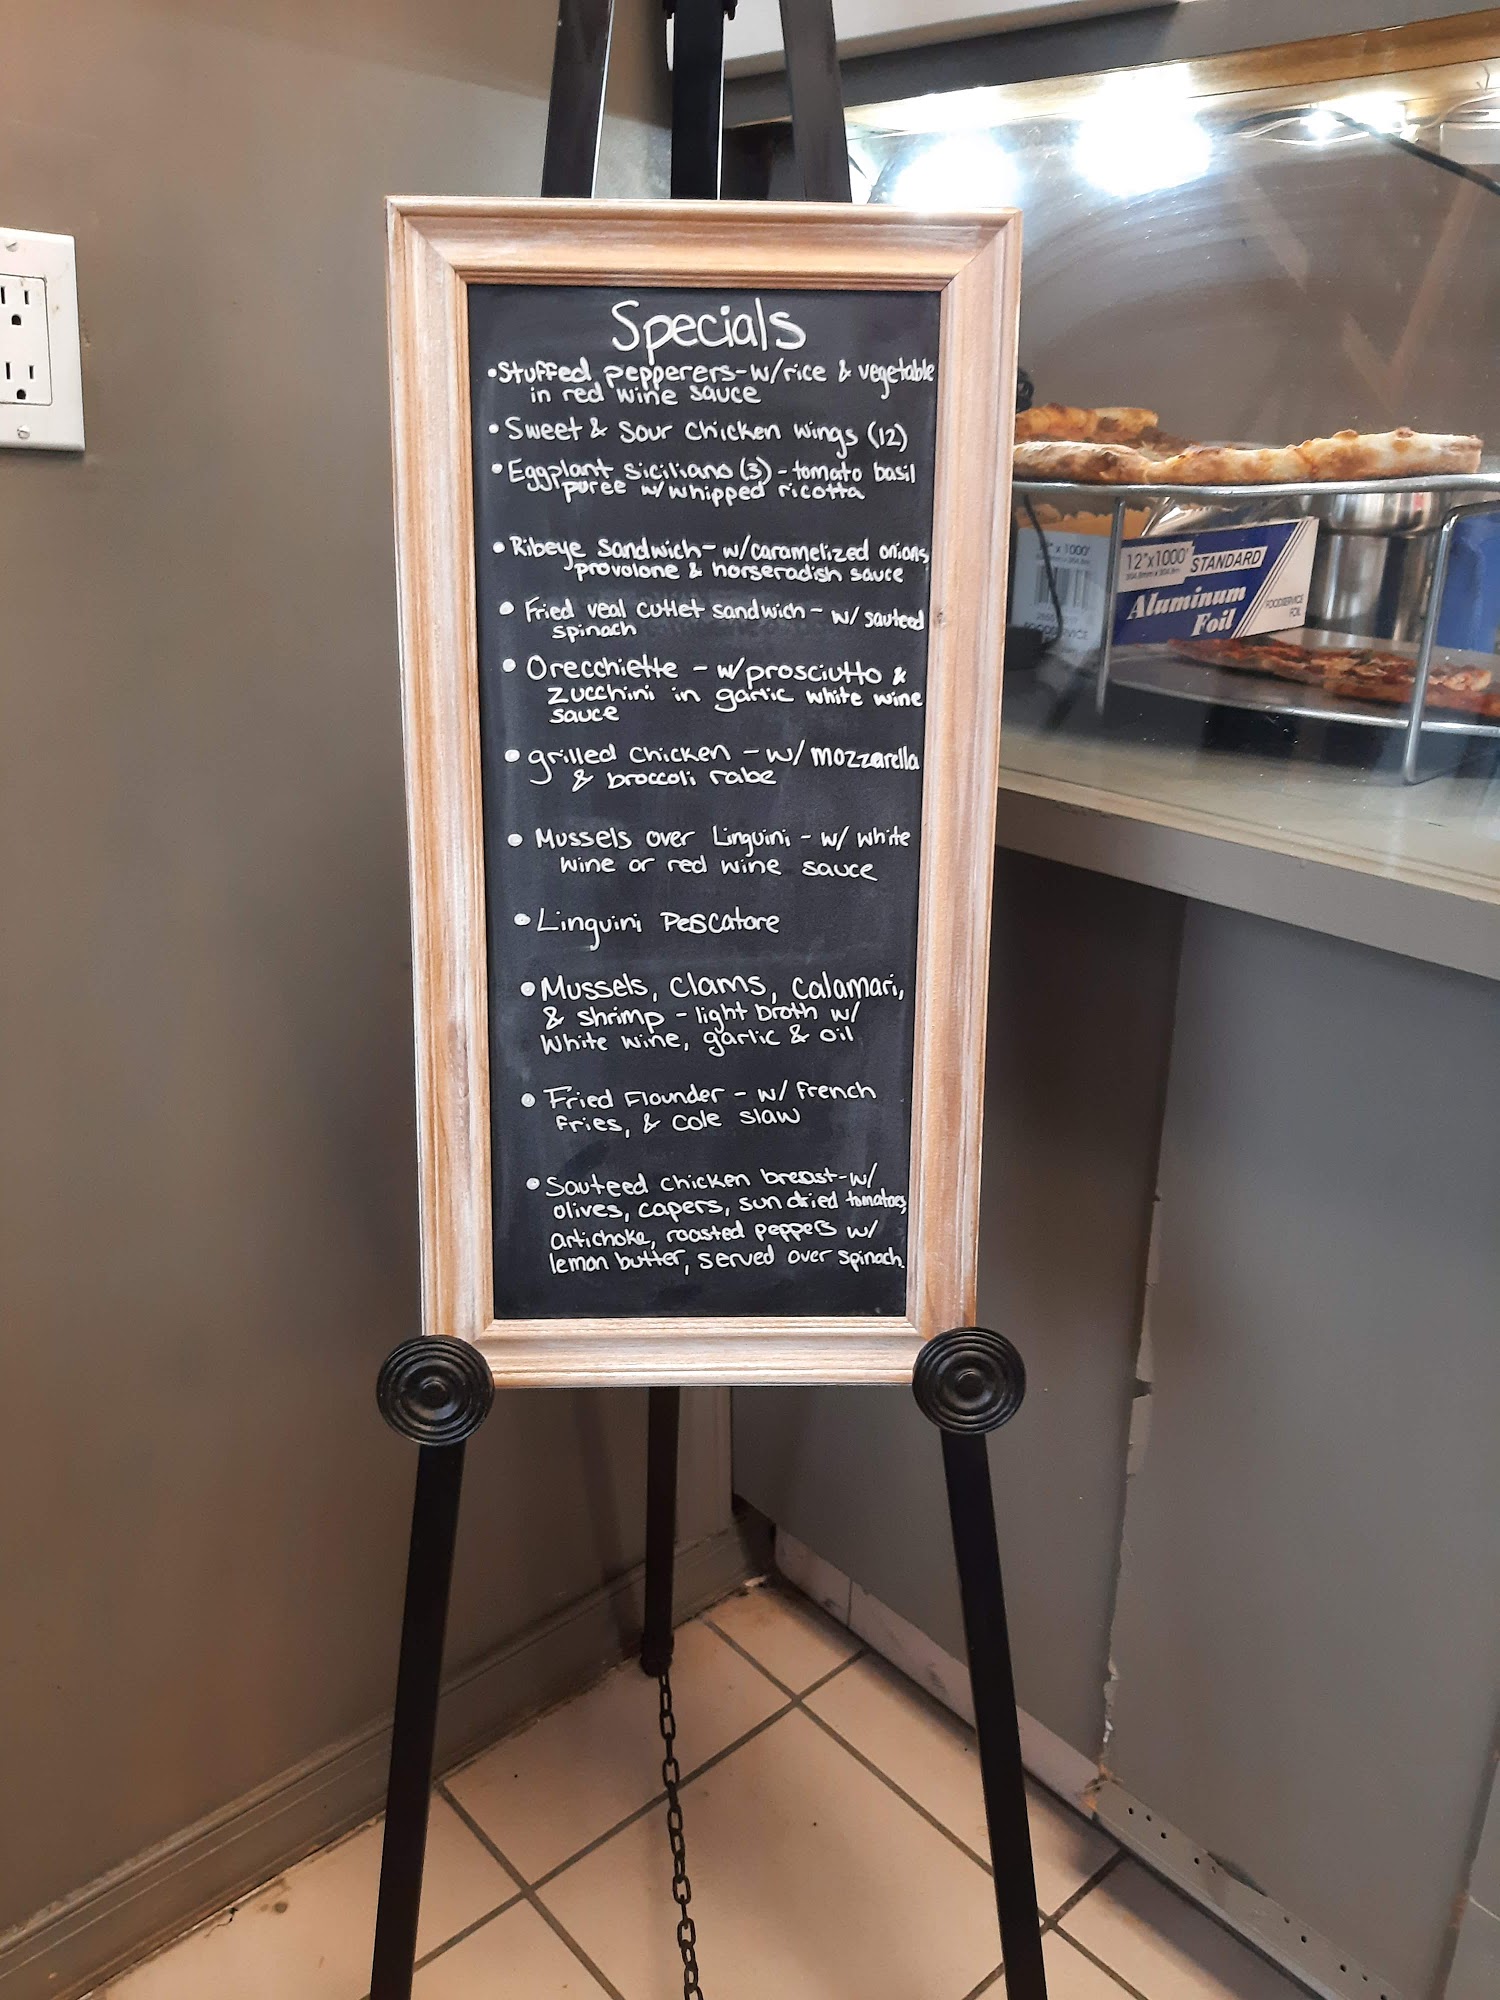 Specials
•Stuffed pepperers-w/rice & vegetable
in red wine sauce
• Sweet & Sour Chicken Wings (12)
• Eggplant Siciliano (3) - tomato basil
puree w/whipped ricotta
• Ribeye Sandwich- w/caramelized onions,
provolone & horseradish sauce
• Fried veal cutlet sandwich - w/ sauteed
spinach
• Orecchiette - w/prosciutto &
zucchini in garlic white wine
sauce
• grilled Chicken - w/ mozzarella
& broccoli rabe
• Mussels over Linguini - w/ white
wine or red wine sauce
• Linguini Pescatore
• Mussels, clams, calamari,
& shrimp - light broth w/
White wine, garlic & oil
• Fried Flounder - w/ French
Fries, & Cole slaw
• Sauteed chicken breast-w/
olives, capers, sun dried tomatoes,
artichoke, roasted peppers w/
lemon butter, served over spinach.
" x 1000'
12"x1000' STANDARD
Aluminum
Foil
FOODSERVICE
FOIL